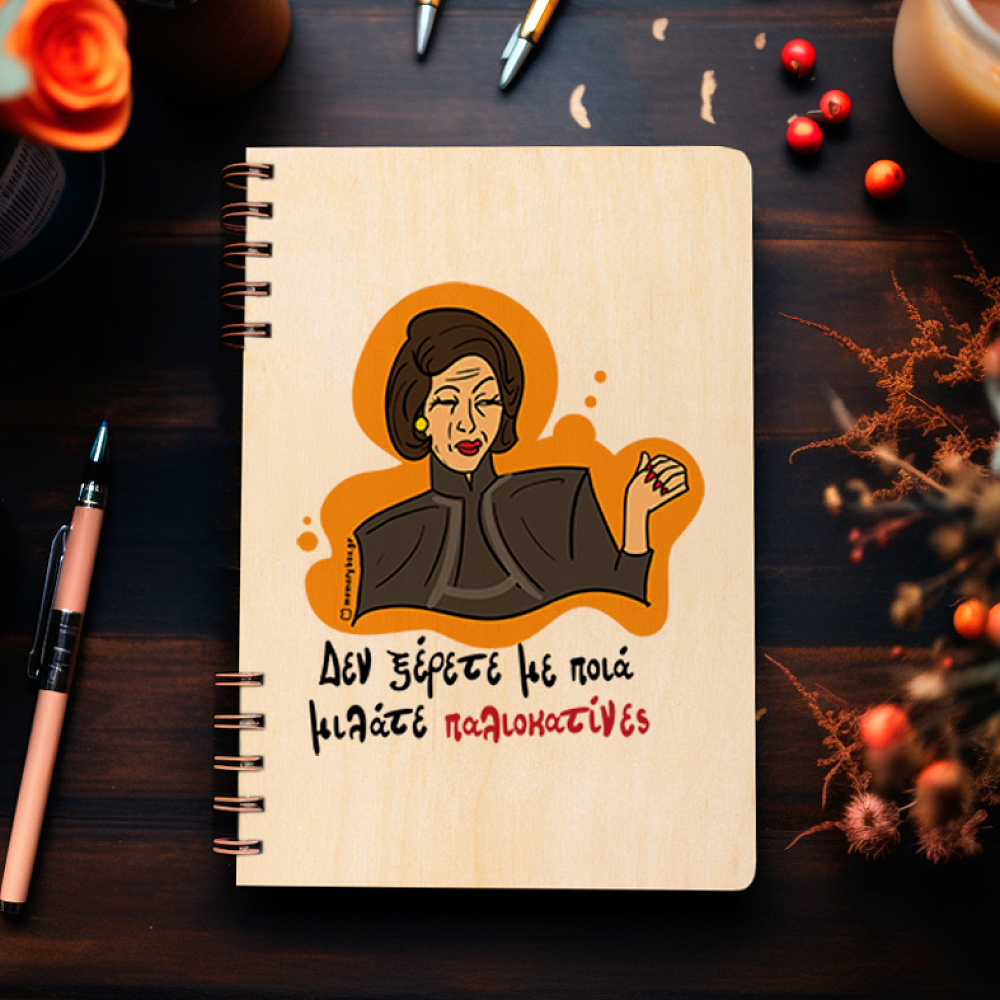 Δεν ξέρετε με ποιά
μιλάτε παλιοκατίνες
memorybox.gr